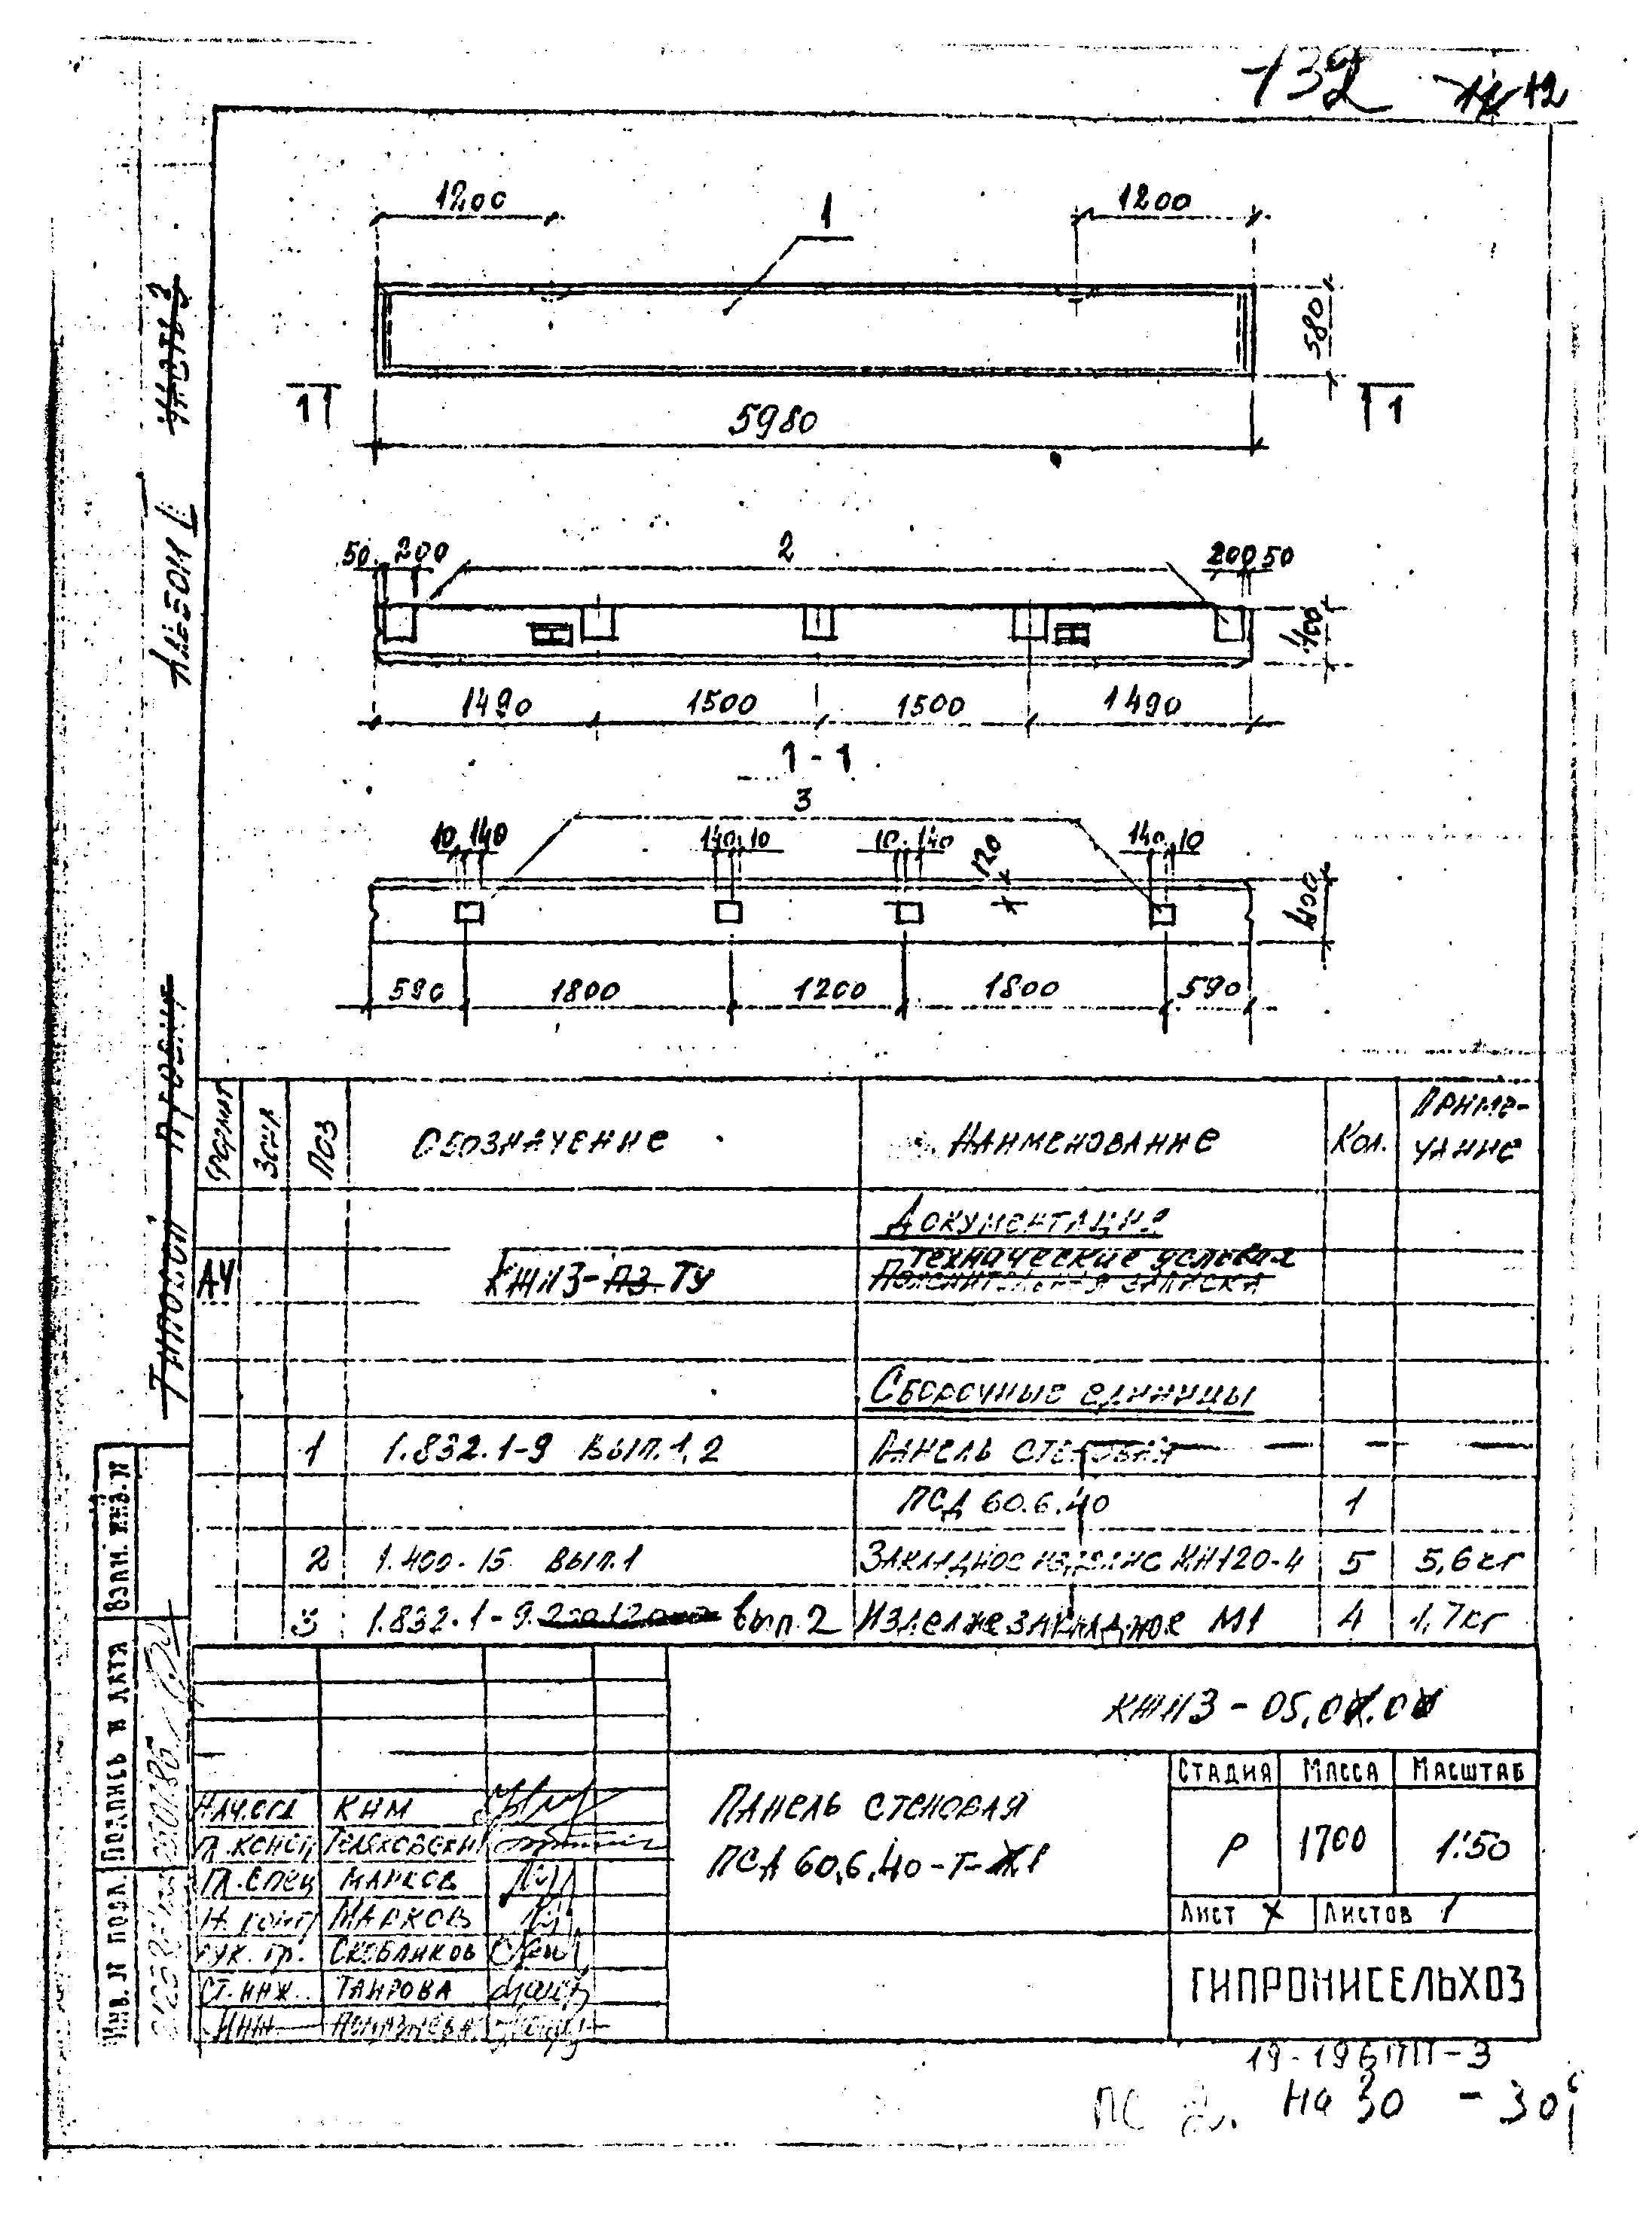 132 12
1200 1 1200
580
1 1
5980
50 200 2 200 50
400
1490 1500 1500 1490
1-1
3
10 140 140 10 10 140 120 140 10
400
590 1800 1200 1800 590
Альбом I
Типовой проект
Формат Зона Поз Обозначение Наименование Кол. Приме-
чание
Документация
технические условия
А4 КЖИ3-ПЗ ТУ Пояснительная записка
Сборочные единицы
1 1.832.1-9 Вып.1,2 Панель стеновая
ПСД 60.6.40 1
2 1.400-15 Вып.1 Закладное изделие МН120-4 5 5,6 кг
3 1.832.1-9. вып.2 Изделие закладное М1 4 1,7 кг
Взам. инв. N
Подпись и дата
Инв. N подл.
КЖИ3-05.
Стадия Масса Масштаб
Р 1700 1:50
Панель стеновая
ПСД 60.6.40-Т-1
Лист Листов 1
ГИПРОНИСЕЛЬХОЗ
Нач.отд Ким
Гл. конст.
Гл. спец Марков
Н. контр Марков
Рук. гр. Скобликов
Ст. инж. Таирова
Инж
19-196 -3
ПС На 30 - 30